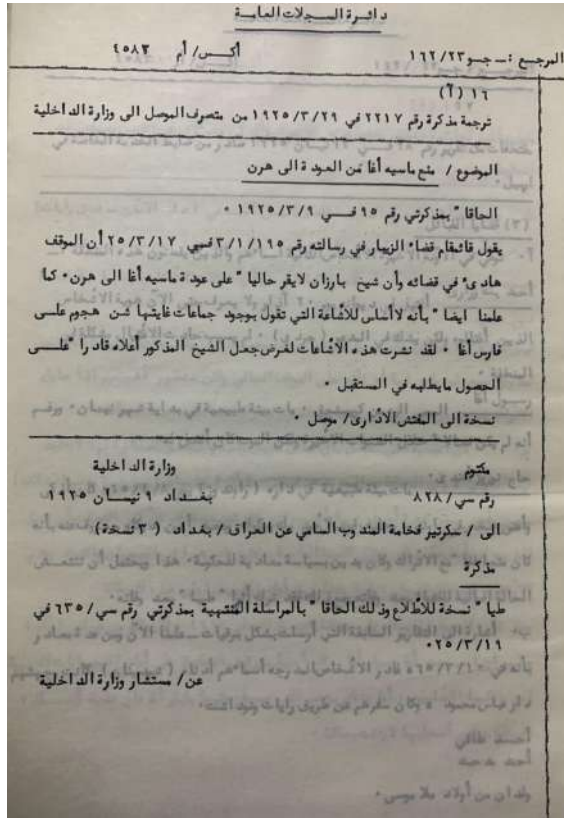 دائرة السجلات العامة
المرجع :ـ جو ١٦٢/٢٣ أكس/ أم ٤٥٨٣
١٦ (أ)
ترجمة مذكرة رقم ٢٢١٧ في ١٩٢٥/٣/٢٩ من متصرف الموصل الى وزارة الداخلية
الموضوع / منع ماسيه أغا من العودة الى هرن
الحاقا " بمذكرتي رقم ٩٥ فــي ١٩٢٥/٣/٩ ٠
يقول قائمقام قضاء الزيبار في رسالته رقم ٣/١/١٩٥ فــي ٢٥/٣/١٧ أن الموقف
هادىء في قضائه وأن شيخ بارزان لايقر حاليا " على عودة ماسيه أغا الى هرن ٠ كما
علمنا ايضا " بأنه لا أساس للاشاعة التي تقول بوجود جماعات غايتها شن هجوم علــى
فارس أغا ٠ لقد نشرت هذه الاشاعات لغرض جعل الشيخ المذكور أعلاه قادرا " علــى
الحصول مايطلبه في المستقبل ٠
نسخة الى المفتش الادارى/ موصل ٠
مكتوم وزارة الداخلية
رقم سي/ ٨٢٨ بغــداد ٩ نيسـان ١٩٢٥
الى / سكرتير فخامة المندوب السامي عن العراق / بغداد ( ٣ نسخة)
مذكرة
طيا " نسخة للاطلاع وذلك الحاقا " بالمراسلة المنتهية بمذكرتي رقم سي/ ٦٣٥ في
٢٥/٣/١٩ ٠
عن/ مستشار وزارة الداخلية